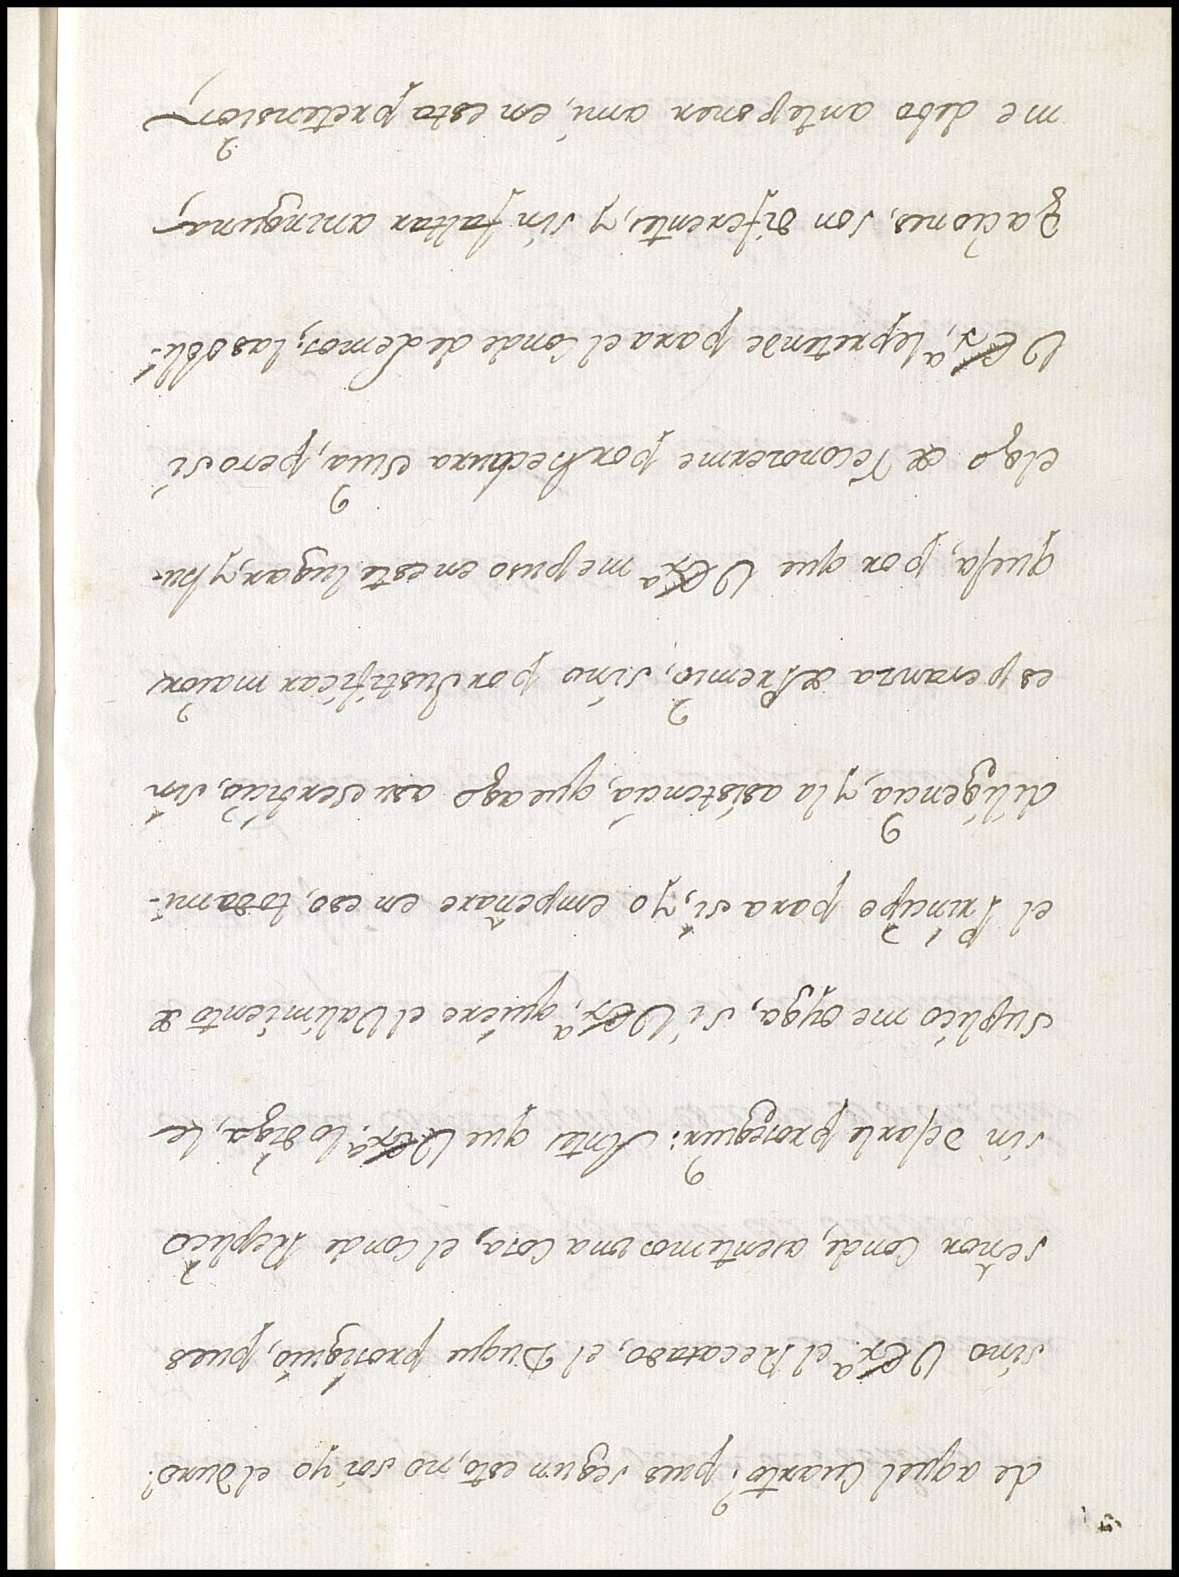 de aquel Cuarto? pues segun esto, no soi yo el duro?
sino V Exª el Recatado, el Duque prosiguió, pues
señor Conde, asentemos una Cosa, el Conde Replicó
sin dejarle proseguir: Antes que V Exª lo diga, le
suplico me oyga, si V Exª, quiere el Valimiento de
el Principe para si, yo empeñare en eso, toda mi-
diligencia, y la asistencia, que ago a su servicio, sin
esperanza de Premio, sino por Justificar maior
queja, por que V Exª me puso en este lugar, y hu-
elgo de Reconocerme por hechura suia, pero si
V Exª, le pretende para el Conde de Lemos, las obli-
gaciones, son diferentes, y sin faltar a ninguna
me debo anteponer a mi, en esta pretension,